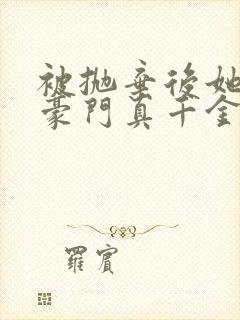 被拋棄後她
豪門真千金
羅賓